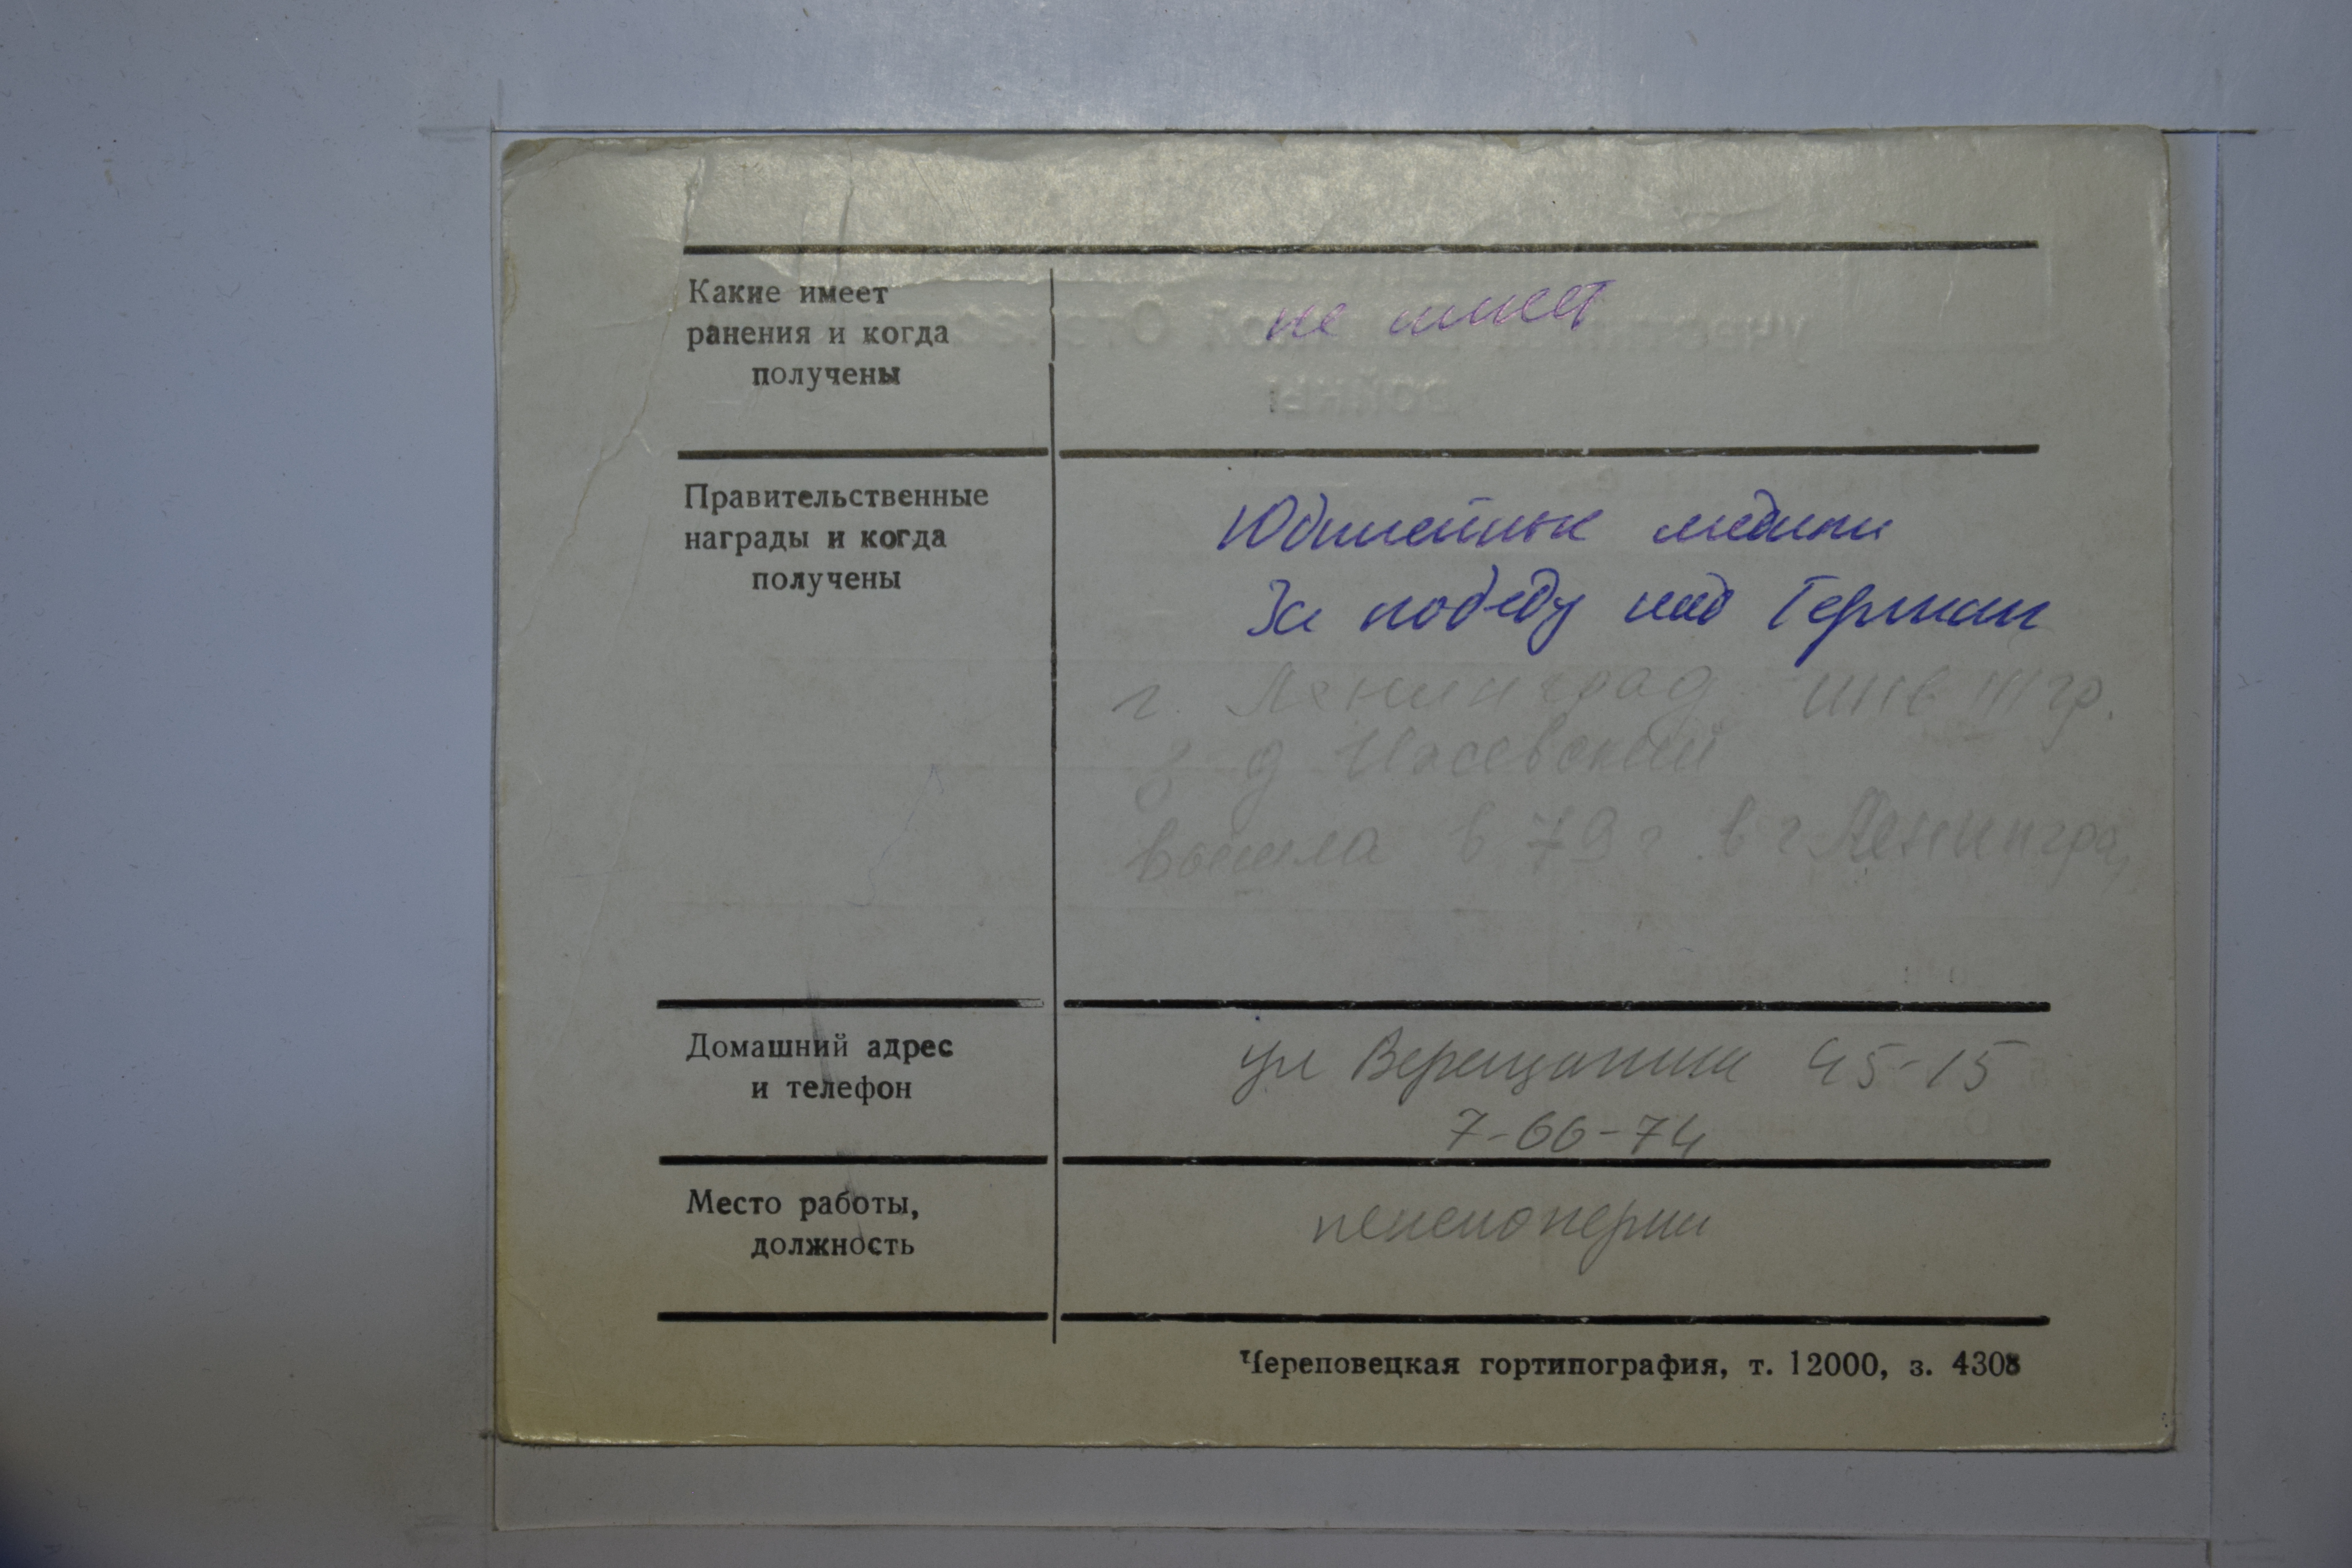 Какие имеет
ранения и когда
получены
не имеет
Правительственные
награды и когда
получены
Юбилейные медали
За победу над Герман
г. Ленинград инв III гр.
з-д Ижевский
вышла в 79 г в г Ленингра
Домашний адрес
и телефон
ул Верещагина 45-15
7-66-74
Место работы,
должность
пенсионерка
Череповецкая гортипография, т. 12000, з. 4308